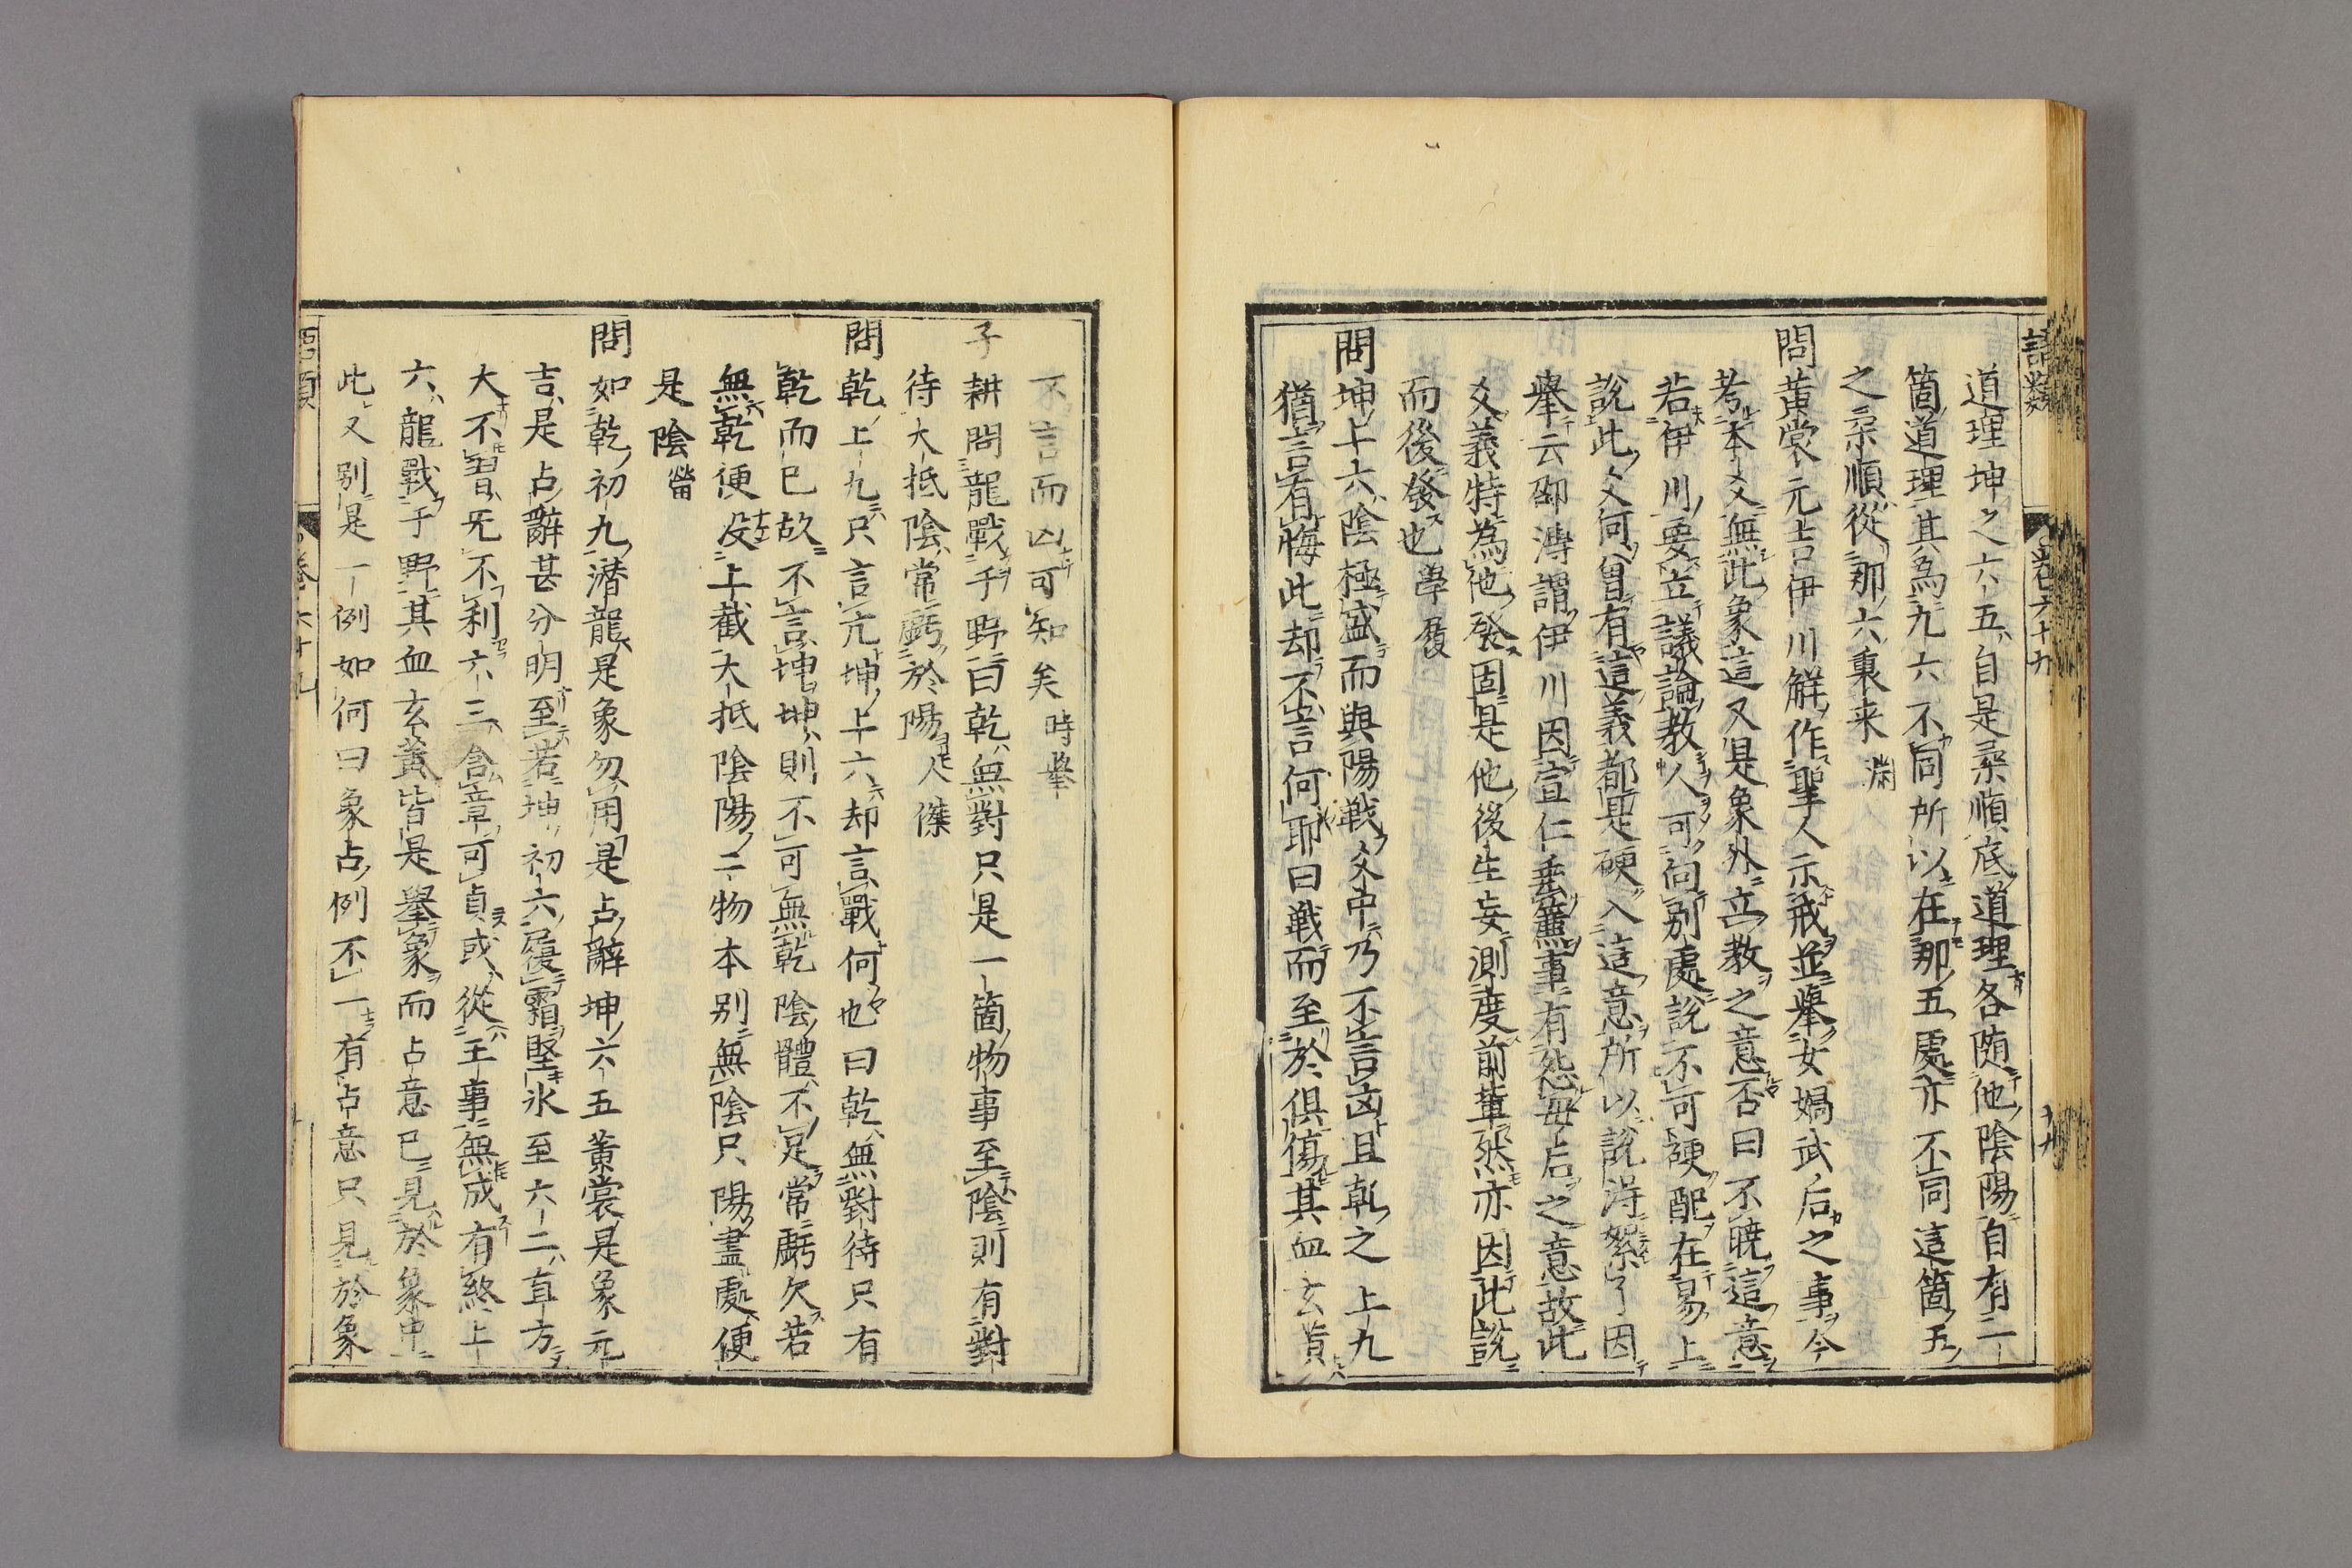 語類
卷六十九
十九
道理坤之六五自是柔順底道理各随他陰陽自有一
箇道理其為九六不同所以在那五處亦不同這箇五
之柔順從那六裏来 淵
問黃裳元吉伊川解作聖人示戒並舉女媧武后之事今
考本爻無此象這又是象外立教之意否曰不曉這意
若伊川要立議論教人可向別處說不可硬配在易上
說此爻何曾有這義都是硬入這意所以說得絮了因
舉云邵溥謂伊川因宣仁垂簾事有怨母后之意故此
爻義特為他發固是他後生妄測度前輩然亦因此說
而後發也 學履
問坤上六陰極盛而與陽戦爻中乃不言凶且乾之上九
猶言有悔此却不言何耶曰戦而至於俱傷其血玄黄
不言而凶可知矣 時舉
子耕問龍戰于野曰乾無對只是一箇物事至陰則有對
待大抵陰常虧於陽 人傑
問乾上九只言亢坤上六却言戰何也曰乾無對待只有
乾而已故不言坤坤則不可無乾陰體不足常虧欠若
無乾便没上截大抵陰陽二物本別無陰只陽盡處便
是陰 㽦
問如乾初九潛龍是象勿用是占辭坤六五黃裳是象元
吉是占辭甚分明至若坤初六履霜堅氷至六二直方
大不習无不利六三含章可貞或從王事無成有終上
六龍戰于野其血玄黃皆是舉象而占意已見於象中
此又別是一例如何曰象占例不一有占意只見於象
語類
卷六十九